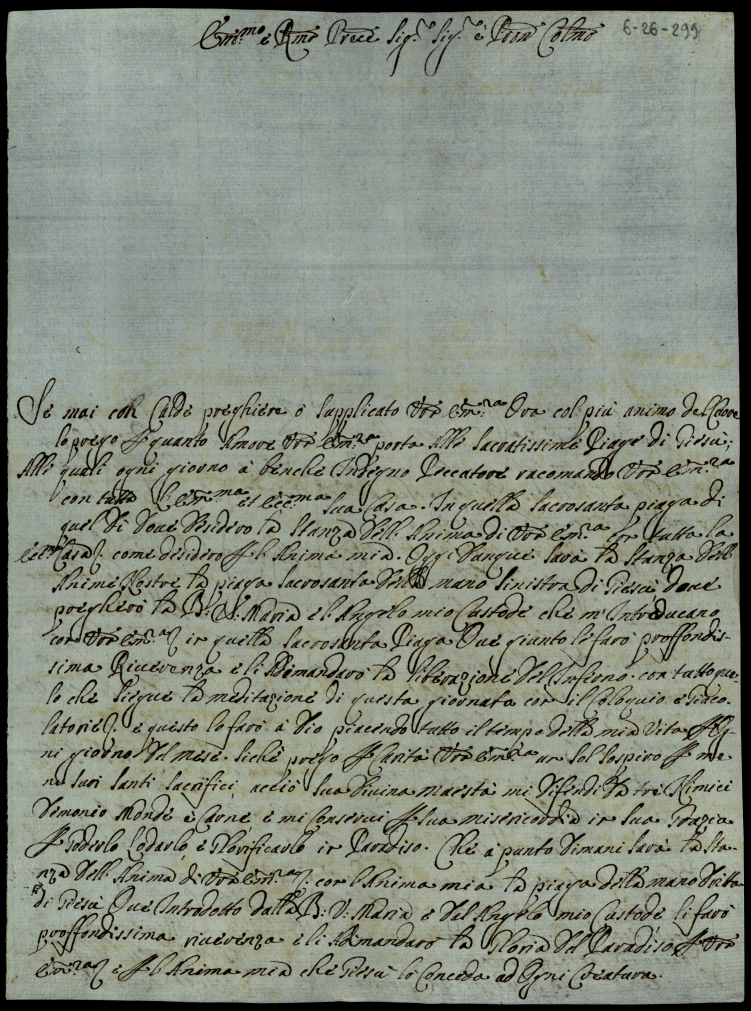 Em.mo e Rmo Prēce Sig.r Sig.r e Pron Colmo
6-26-299
Se mai con Calde preghiere ò supplicato Vrā Em.za Ora col più animo del Cuore
lo prego per quanto Amore Vrā Em.za porta Alle Sacratissime Piage di Giesù;
Alle quali ogni giorno à benche Indegno Peccatore racomando Vrā Em.za
con tutta l'Em.ma et Ecc.ma sua Casa. In quella Sacrosanta piaga di
quel Dì Doue desidero la Stanza dell'Anima di Vrā Em.za con tutta la
Casa come desidero per l'Anima mia. Oggi Dunque sarà la Stanza dell
Anime Nostre la piaga Sacrosanta della mano Sinistra di Giesù doue
pregherò la B. V. Maria e l'Angelo mio Custode che m'Introducano
con Vrā Em.za in quella Sacrosanta Piaga Oue gianto li farò proffondis=
sima Riuerenza e li Adimandarò la liberazione dell'Inferno. con tutto que=
lo che siegue la meditazione di questa giornata con il Coloquio e Giaco=
latorie e questo lo farò à Dio piacendo tutto il tempo della mia Vita Og=
ni giorno del mese. Siche prego per Carità Vrā Em.za un sol Sospiro per me
ne suoi Santi Sacrifici, acciò Sua Diuina Maestà mi Difendi da tre Nimici
Demonio Mondo e Carne e mi Conserui per sua misericordia in sua Grazia
per Goderlo Lodarlo e Glorificarlo in Paradiso. Che à punto Dimani sarà la Sta=
nza dell'Anima di Vrā Em.za con l'Anima mia la piaga della mano Dritta
di Giesù Oue Introdotto dalla B: V: Maria e dal Angelo mio Custode li farò
proffondissima riuerenza e li Adimandarò la Gloria del Paradiso per Vrā
Em.za e per l'Anima mia che Giesù lo Conceda ad Ogni Creatura.